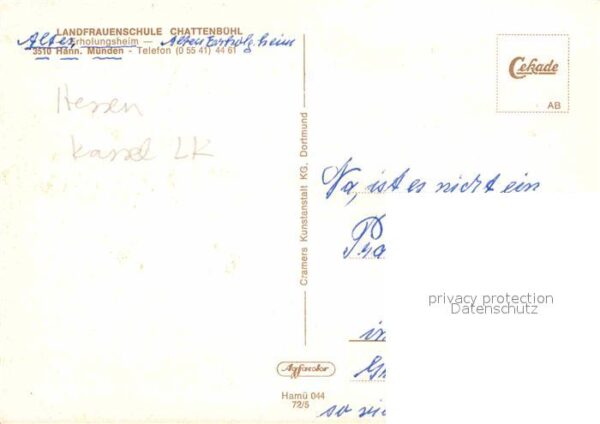 LANDFRAUENSCHULE CHATTENBÜHL
Alten Erholungsheim — Alten Erholg. heim
3510 Hann. Münden - Telefon (0 55 41) 44 61
Cekade
AB
Hessen
Kassel LK
Cramers Kunstanstalt KG, Dortmund
Na, ist es nicht ein
Pra
privacy protection
Datenschutz
in
Agfacolor
Hamü 044
72/5
so